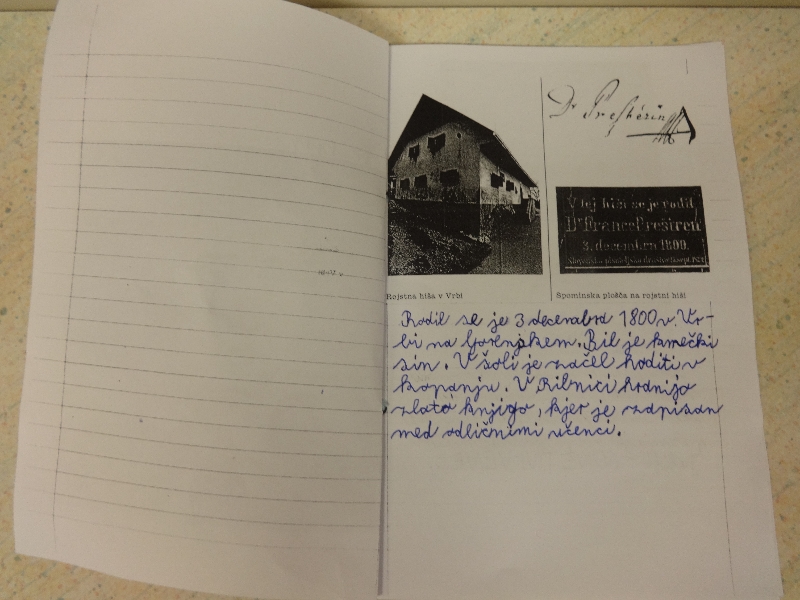 Dr Preshérin
V tej hiši se je rodil
Dr France Prešíren
3. decembra 1800.
Rojstna hiša v Vrbi
Spominska plošča na rojstni hiši
Rodil se je 3 decembra 1800 v Vr-
bi na Gorenjskem. Bil je kmečki
sin. V šoli je začel hoditi v
kopanju. V Ribnici hranijo
zlato knjigo, kjer je zapisan
med odličnimi učenci.